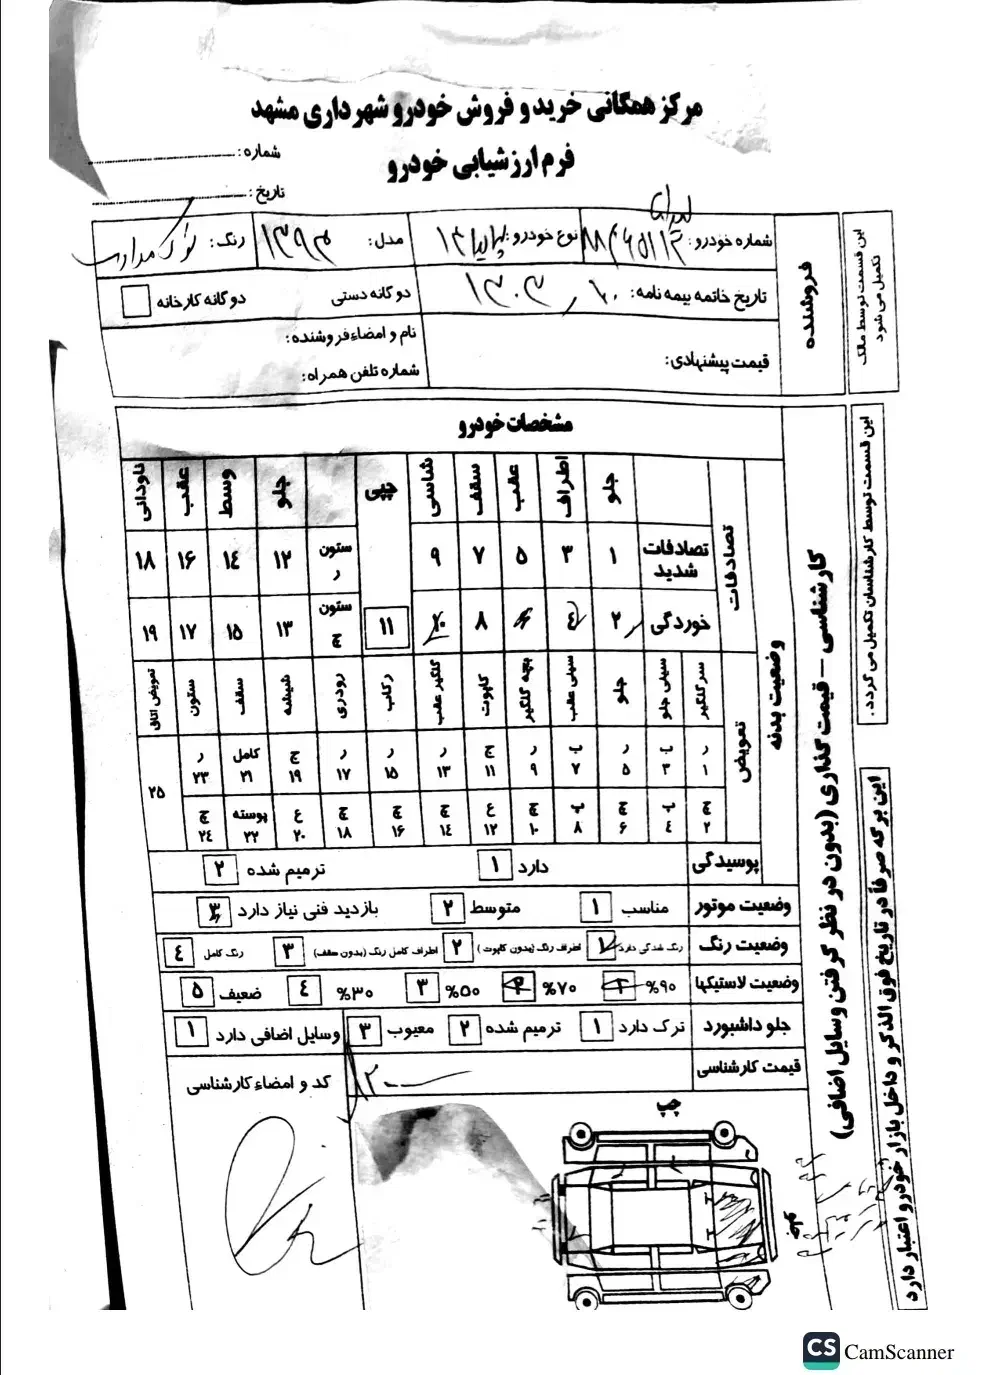 مرکز همگانی خرید و فروش خودرو شهرداری مشهد
فرم ارزشیابی خودرو
شماره:
تاریخ:
این قسمت توسط مالک تکمیل می شود
فروشنده
شماره خودرو: نوع خودرو: مدل: ۱۳۹۳ رنگ: نوک مدادی
تاریخ خاتمه بیمه نامه: دوگانه دستی دوگانه کارخانه
قیمت پیشنهادی: نام و امضاء فروشنده:
شماره تلفن همراه:
این قسمت توسط کارشناسان تکمیل می گردد.
کارشناسی - قیمت گذاری (بدون در نظر گرفتن وسایل اضافی)
این برگه صرفاً در تاریخ فوق الذکر و داخل بازار خودرو اعتبار دارد
مشخصات خودرو
وضعیت بدنه
تصادفات
جلو اطراف عقب سقف شاسی چپی جلو وسط عقب ناودانی
تصادفات شدید ۱ ۳ ۵ ۷ ۹ ستون ر ۱۲ ۱۴ ۱۶ ۱۸
خوردگی ۲ ۴ ۶ ۸ ۱۰ ۱۱ ستون چ ۱۳ ۱۵ ۱۷ ۱۹
تعویض
سرگلگیر سینی جلو جلو سینی عقب بچه گلگیر کاپوت گلگیر عقب رکاب رودری شیشه سقف ستون تعویض اتاق
ر ۱ ب ۳ ر ۵ ب ۷ ر ۹ ج ۱۱ ر ۱۳ ر ۱۵ ر ۱۷ ج ۱۹ کامل ۲۱ ر ۲۳ ۲۵
چ ۲ پ ۴ چ ۶ پ ۸ چ ۱۰ ع ۱۲ چ ۱۴ چ ۱۶ چ ۱۸ ع ۲۰ پوسته ۲۲ چ ۲۴
پوسیدگی دارد ۱ ترمیم شده ۲
وضعیت موتور مناسب ۱ متوسط ۲ بازدید فنی نیاز دارد ۳
وضعیت رنگ رنگ شدگی دارد ۱ اطراف رنگ (بدون کاپوت) ۲ اطراف کامل رنگ (بدون سقف) ۳ رنگ کامل ۴
وضعیت لاستیکها ۹۰% ۱ ۷۰% ۲ ۵۰% ۳ ۳۰% ۴ ضعیف ۵
جلو داشبورد ترک دارد ۱ ترمیم شده ۲ معیوب ۳ وسایل اضافی دارد ۱
قیمت کارشناسی
کد و امضاء کارشناسی
چپ
CS CamScanner